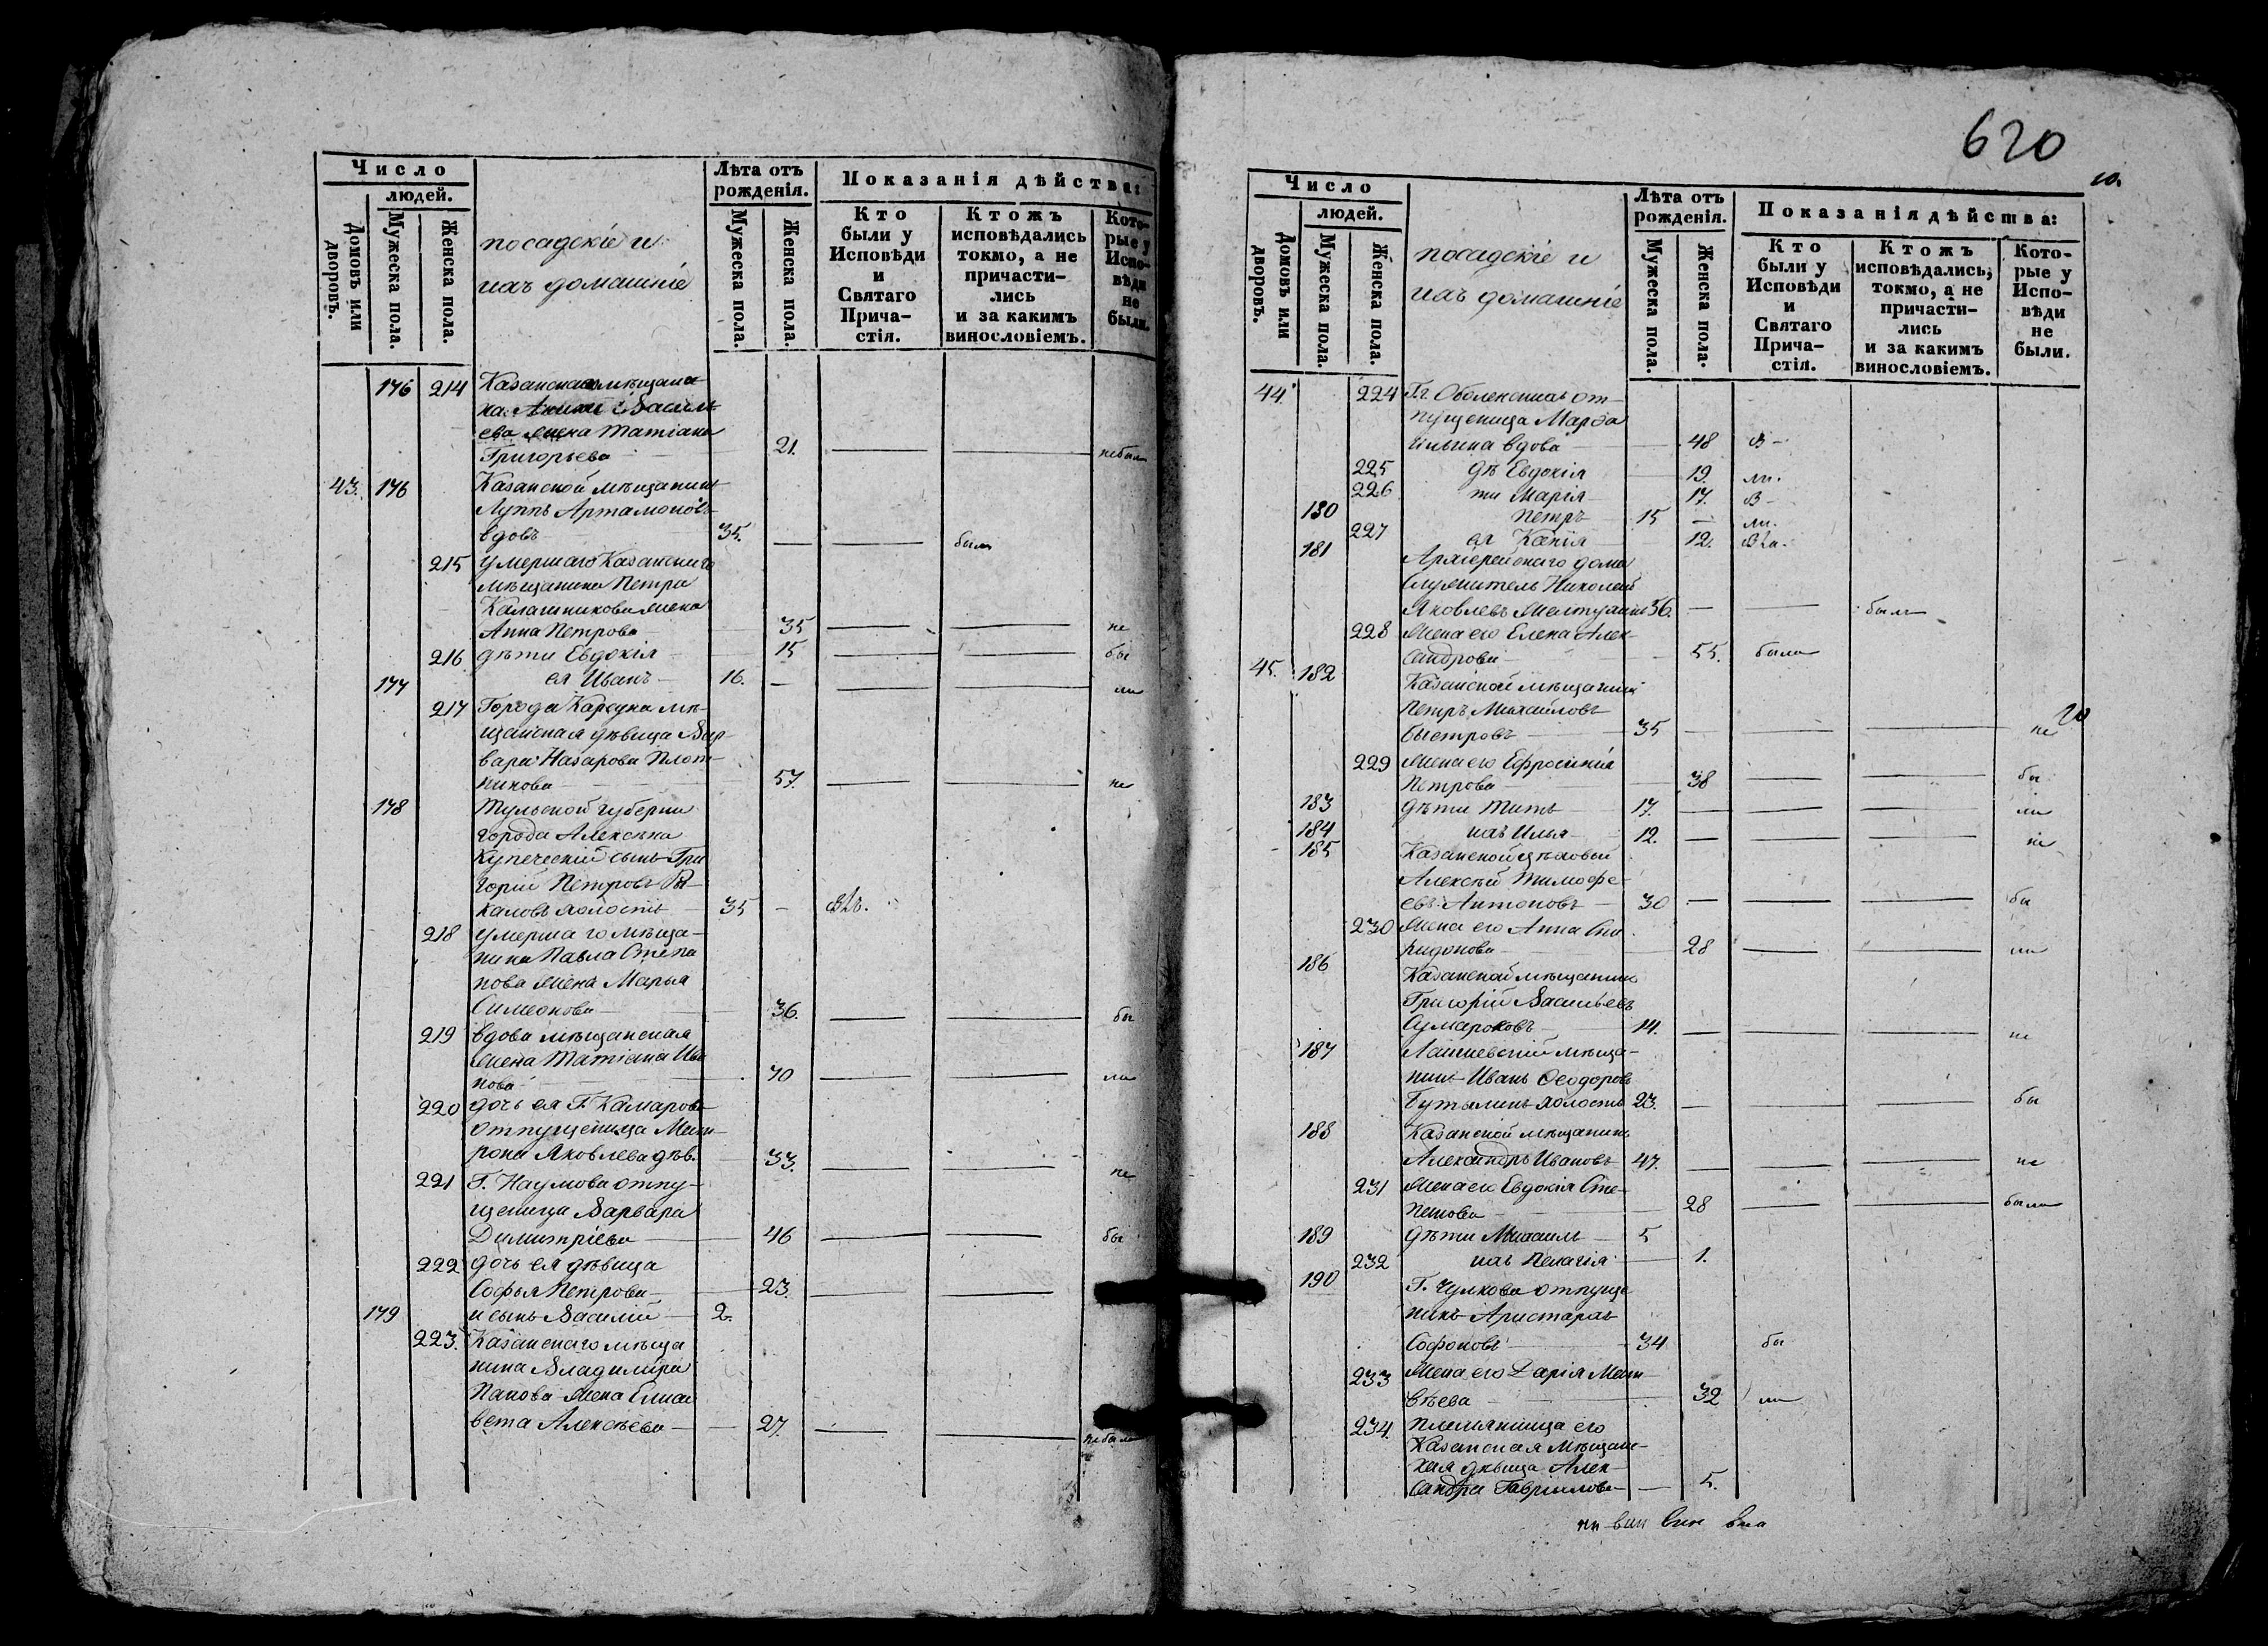 Число
людей.
Домовъ или дворовъ.
Мужеска пола.
Женска пола.
посадскіе и
ихъ домашніе
Лѣта отъ рожденія.
Мужеска пола.
Женска пола.
Показанія дѣйства:
Кто были у Исповѣди и Святаго Прича-стія.
Ктожъ исповѣдались токмо, а не причасти-лись и за какимъ винословіемъ.
Кото-рые у Испо-вѣди не были.
176 214 Казанскаго мѣщани
на Васильева
жена Татіана
Григорьева 21. небыла
43. 176 Казанской мѣщанинъ
Луппъ Артамоновъ
вдовъ 35. былъ
215 умершаго Казанскаго
мѣщанина Петра
Калашникова жена
Анна Петрова 35 не
216 дѣти Евдокія 15 бы
177 ея Иванъ 16. ли
217 Города Карсуна мѣ-
щанская дѣвица Вар-
вара Назарова Плот-
никова 57. не
178 Тульской губерніи
города Алексина
купеческій сынъ Гри
горій Петровъ
каловъ холостъ 35
218 умершаго мѣща-
нина Павла Степа
нова жена Марья
Симеонова 36. бы
219 вдова мѣщанская
жена Татіана Ива
нова 70 ли
220 дочь ея Г. Камарова
отпущенница Мат-
рона Яковлева дѣв. 33. не
221 Г. Наумова отпу-
щенница Варвара
Димитріева 46 бы
222 дочь ея дѣвица
Софья Петрова 23.
179 и сынъ Василій 2.
223. Казанскаго мѣща
нина Владимира
Панова жена Елиса
вета Алексѣева 27. небыла
620
10.
Число
людей.
Домовъ или дворовъ.
Мужеска пола.
Женска пола.
посадскіе и
ихъ домашніе
Лѣта отъ рожденія.
Мужеска пола.
Женска пола.
Показанія дѣйства:
Кто были у Исповѣди и Святаго Прича-стія.
Ктожъ исповѣдались, токмо, а не причасти-лись и за какимъ винословіемъ.
Кото-рые у Испо-вѣди не были.
44. 224 Гг. Оболенскихъ от-
пущенница Марѳа
Ильина вдова 48
225 дѣ Евдокія 19. ли.
226 ти Марія 17.
180 Петръ 15 ли.
227 ея Ксенія 12.
181 Архіерейскаго дома
служитель Николай
Яковлевъ 56. былъ
228 жена его Елена Алек-
сандрова 55. была
45. 182 Казанской мѣщанинъ
Петръ Михайловъ
Быстровъ 35 не
229 жена его Ефросинія
Петрова 38 бы
183 дѣти Титъ 17. ли
184 ихъ Илья 12. не
185 Казанской цѣховый
Алексѣй Тимоѳе-
евъ Антоновъ 30 бы
230 жена его Анна Спи
ридонова 28 ли
186 Казанской мѣщанинъ
Григорій Васильевъ
Сумароковъ 14. не
187 Лаишевскій мѣща-
нинъ Иванъ Ѳеодоровъ
Бутылинъ холостъ 23. бы
188 Казанской мѣщанинъ
Александръ Ивановъ 47. не
231 жена его Евдокія Сте-
панова 28 были
189 дѣти Михаилъ 5
232 ихъ Пелагія 1.
190 Г. Чулкова отпуще
никъ Аристархъ
Софоновъ 34 бы
233 жена его Дарія Мат-
вѣева 32 ли
234. племянница его
Казанская мѣщанс-
кая дѣвица Алек-
сандра Гаврилова 5.